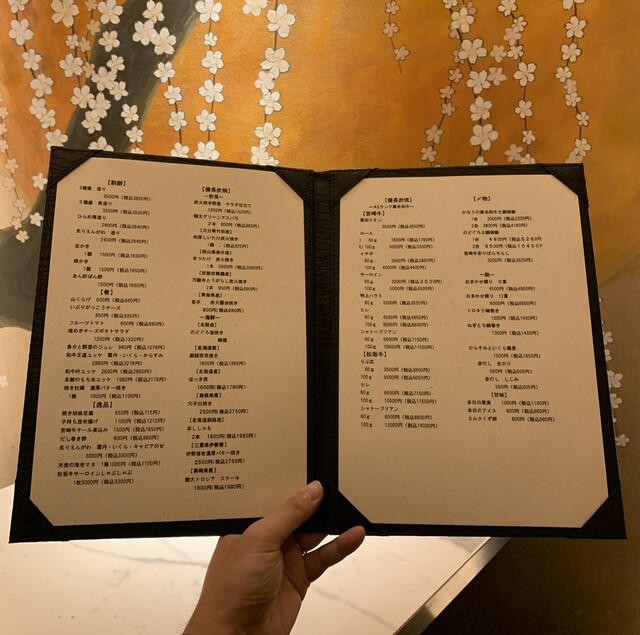 【割鮮】
5種盛 造り
3500円(税込3850円)
3種盛 貝造り
3200円(税込3520円)
ひらめ薄造り
2400円(税込2640円)
炙りえんがわ 造り
2400円(税込2640円)
生かき
1個 1500円(税込1650円)
焼かき
1個 1500円(税込1650円)
あん肝ぽん酢
1500円(税込1650円)
【肴】
山くらげ 600円(税込660円)
いぶりがっこチーズ
850円(税込935円)
フルーツトマト 800円(税込880円)
塊めきチーズポテトサラダ
1200円(税込1320円)
魚介と野菜のジュレ 980円(税込1078円)
和牛王道ユッケ 雲丹・いくら・からすみ
2980円(税込3278円)
和牛吟ユッケ 2600円(税込2860円)
本鮪のもち米ユッケ 1980円(税込2178円)
焼き牡蠣 濃厚バター焼き
1個 1000円(税込1100円)
【逸品】
焼き胡麻豆腐 650円(税込715円)
子持ち昆布揚げ 1100円(税込1210円)
宮崎牛テール煮込み 1500円(税込1650円)
だし巻き卵 800円(税込880円)
炙りえんがわ 雲丹・いくら・キャビアのせ
3000円(税込3300円)
天使の海老マヨ 1尾1000円(税込1100円)
松坂牛サーロインしゃぶしゃぶ
1枚3000円(税込3300円)
【備長炭焼】
～野菜～
炭火焼き野菜 サラダ仕立て
1200円(税込1320円)
極太グリーンアスパラ
2本 800円(税込880円)
【大分県竹田産】
肉厚しいたけ炭火焼き
【岡山県高梁市産】
まつたけ 炭火焼き
1本 2800円(税込3080円)
【京都府舞鶴産】
万願寺とうがらし炭火焼き
2本 900円(税込990円)
【青森県産】
長芋 炭火醤油焼き
800円(税込880円)
～海鮮～
【北陸産】
のどぐろ塩焼き
時価
【北海道産】
銀鱈西京焼き
1800円(税込1980円)
【北海道産】
ほっき貝
1600円(税込1760円)
【島根県産】
穴子白焼き
2500円(税込2750円)
【北海道釧路産】
本ししゃも
2本 1800円(税込1980円)
【三重県伊勢産】
伊勢海老濃厚バター焼き
2500円(税込2750円)
【長崎県産】
鮪大トロレア ステーキ
1800円(税込1980円)
【備長炭焼】
～A5ランク黒毛和牛～
【宮崎牛】
厚切りタン
3500円(税込3850円)
ロース
60g 1600円(税込1760円)
100g 3000円(税込3300円)
イチボ
60g 2600円(税込2860円)
100g 4000円(税込4400円)
サーロイン
60g 3200円(税込3520円)
100g 5000円(税込5500円)
特上ハラミ
100g 3200円(税込3520円)
ヒレ
60g 4500円(税込4950円)
100g 8000円(税込8800円)
シャトーブリアン
60g 6500円(税込7150円)
100g 10000円(税込11000円)
【松阪牛】
りぶ芯
60g 3500円(税込3850円)
100g 5500円(税込6050円)
ヒレ
60g 6500円(税込7150円)
100g 10500円(税込11550円)
シャトーブリアン
60g 8000円(税込8800円)
100g 13000円(税込14300円)
【〆物】
かなうの黒毛和牛土鍋御飯
1合 2000円(税込2200円)
2合 3800円(税込4180円)
のどぐろ土鍋御飯
1合 4800円(税込5280円)
2合 9500円(税込10450円)
宮崎牛彩りばらちらし
3200円(税込3520円)
～鮨～
おまかせ握り 9貫
4500円(税込4950円)
おまかせ握り 12貫
6000円(税込6600円)
トロタク細巻き
1300円(税込1430円)
ねぎとろ細巻き
1300円(税込1430円)
からすみといくら蕎麦
1500円(税込1650円)
赤だし 生のり
550円(税込605円)
赤だし しじみ
550円(税込605円)
【甘味】
本日の果実 1000円(税込1100円)
本日のアイス 600円(税込660円)
ミルクくず餅 800円(税込880円)